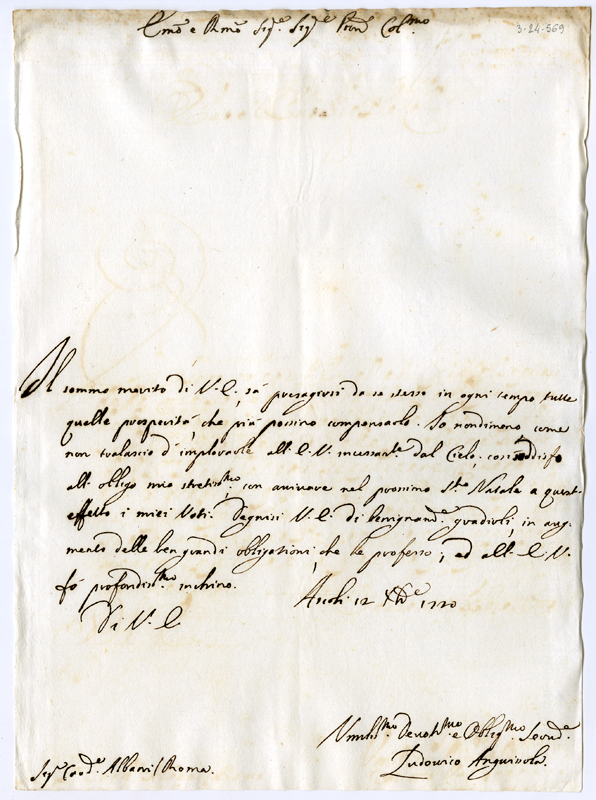 Em̃o e Rm̃o Sig.e Sig.e Pron Col.mo
3-24-569
Il sommo merito di V. E. sà presagirsi da se stesso in ogni tempo tutte
quelle prosperità, che più possino compensarlo. Io nondimeno come
non tralascio d'implorarle all'E. V. incessant.e dal Cielo, così soddisfo
all'obligo mio stretiss.mo con avvivare nel prossimo S.to Natale a quest'
effetto i miei Voti. Degnisi V. E. di benignam.e gradirli, in aug-
mento delle ben grandi obligationi, che le professo; ed all'E. V.
fò profondiss.mo inchino.
Ascoli 12 Xbr.e 1720
Di V. E.
Umiliss.mo Devotiss.mo e Obligmo Serv.e
Ludovico Anguissola.
Sig.e Card.e Albani / Roma.